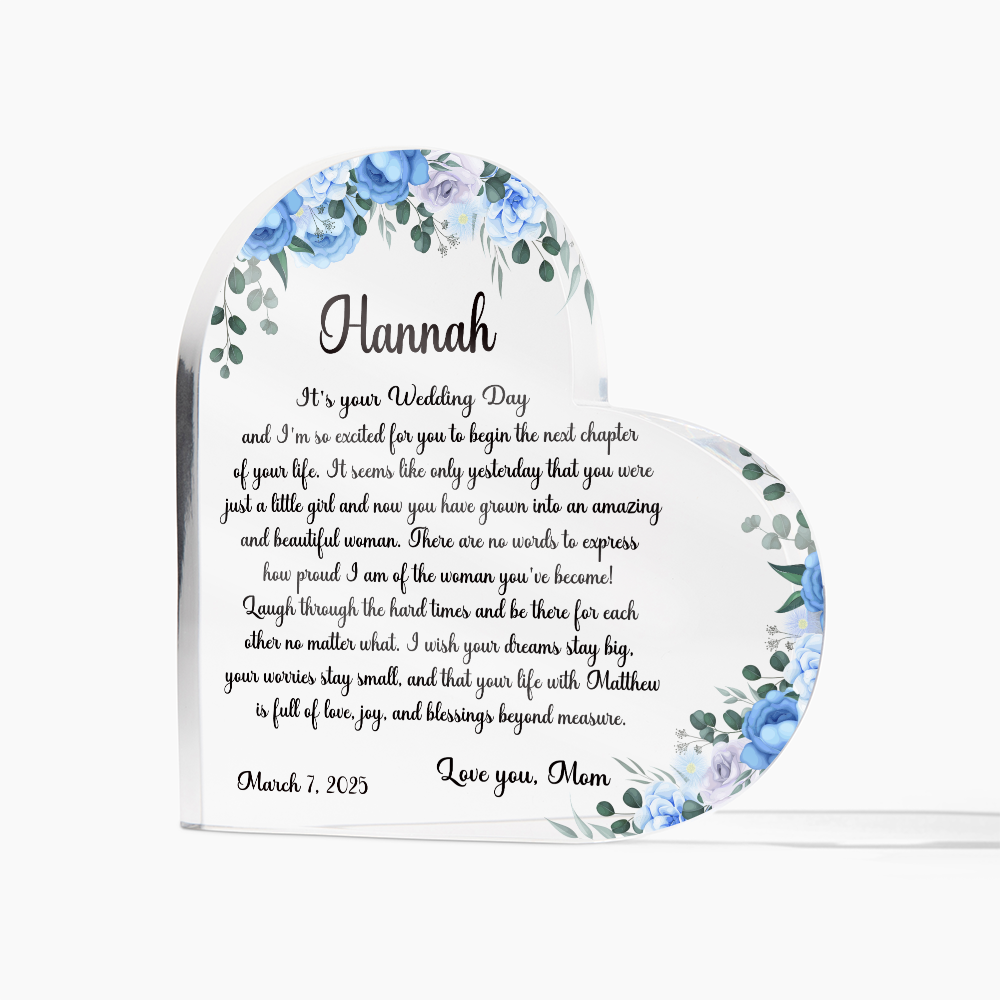 Hannah
It's your Wedding Day
and I'm so excited for you to begin the next chapter
of your life. It seems like only yesterday that you were
just a little girl and now you have grown into an amazing
and beautiful woman. There are no words to express
how proud I am of the woman you've become!
Laugh through the hard times and be there for each
other no matter what. I wish your dreams stay big,
your worries stay small, and that your life with Matthew
is full of love, joy, and blessings beyond measure.
Love you, Mom
March 7, 2025